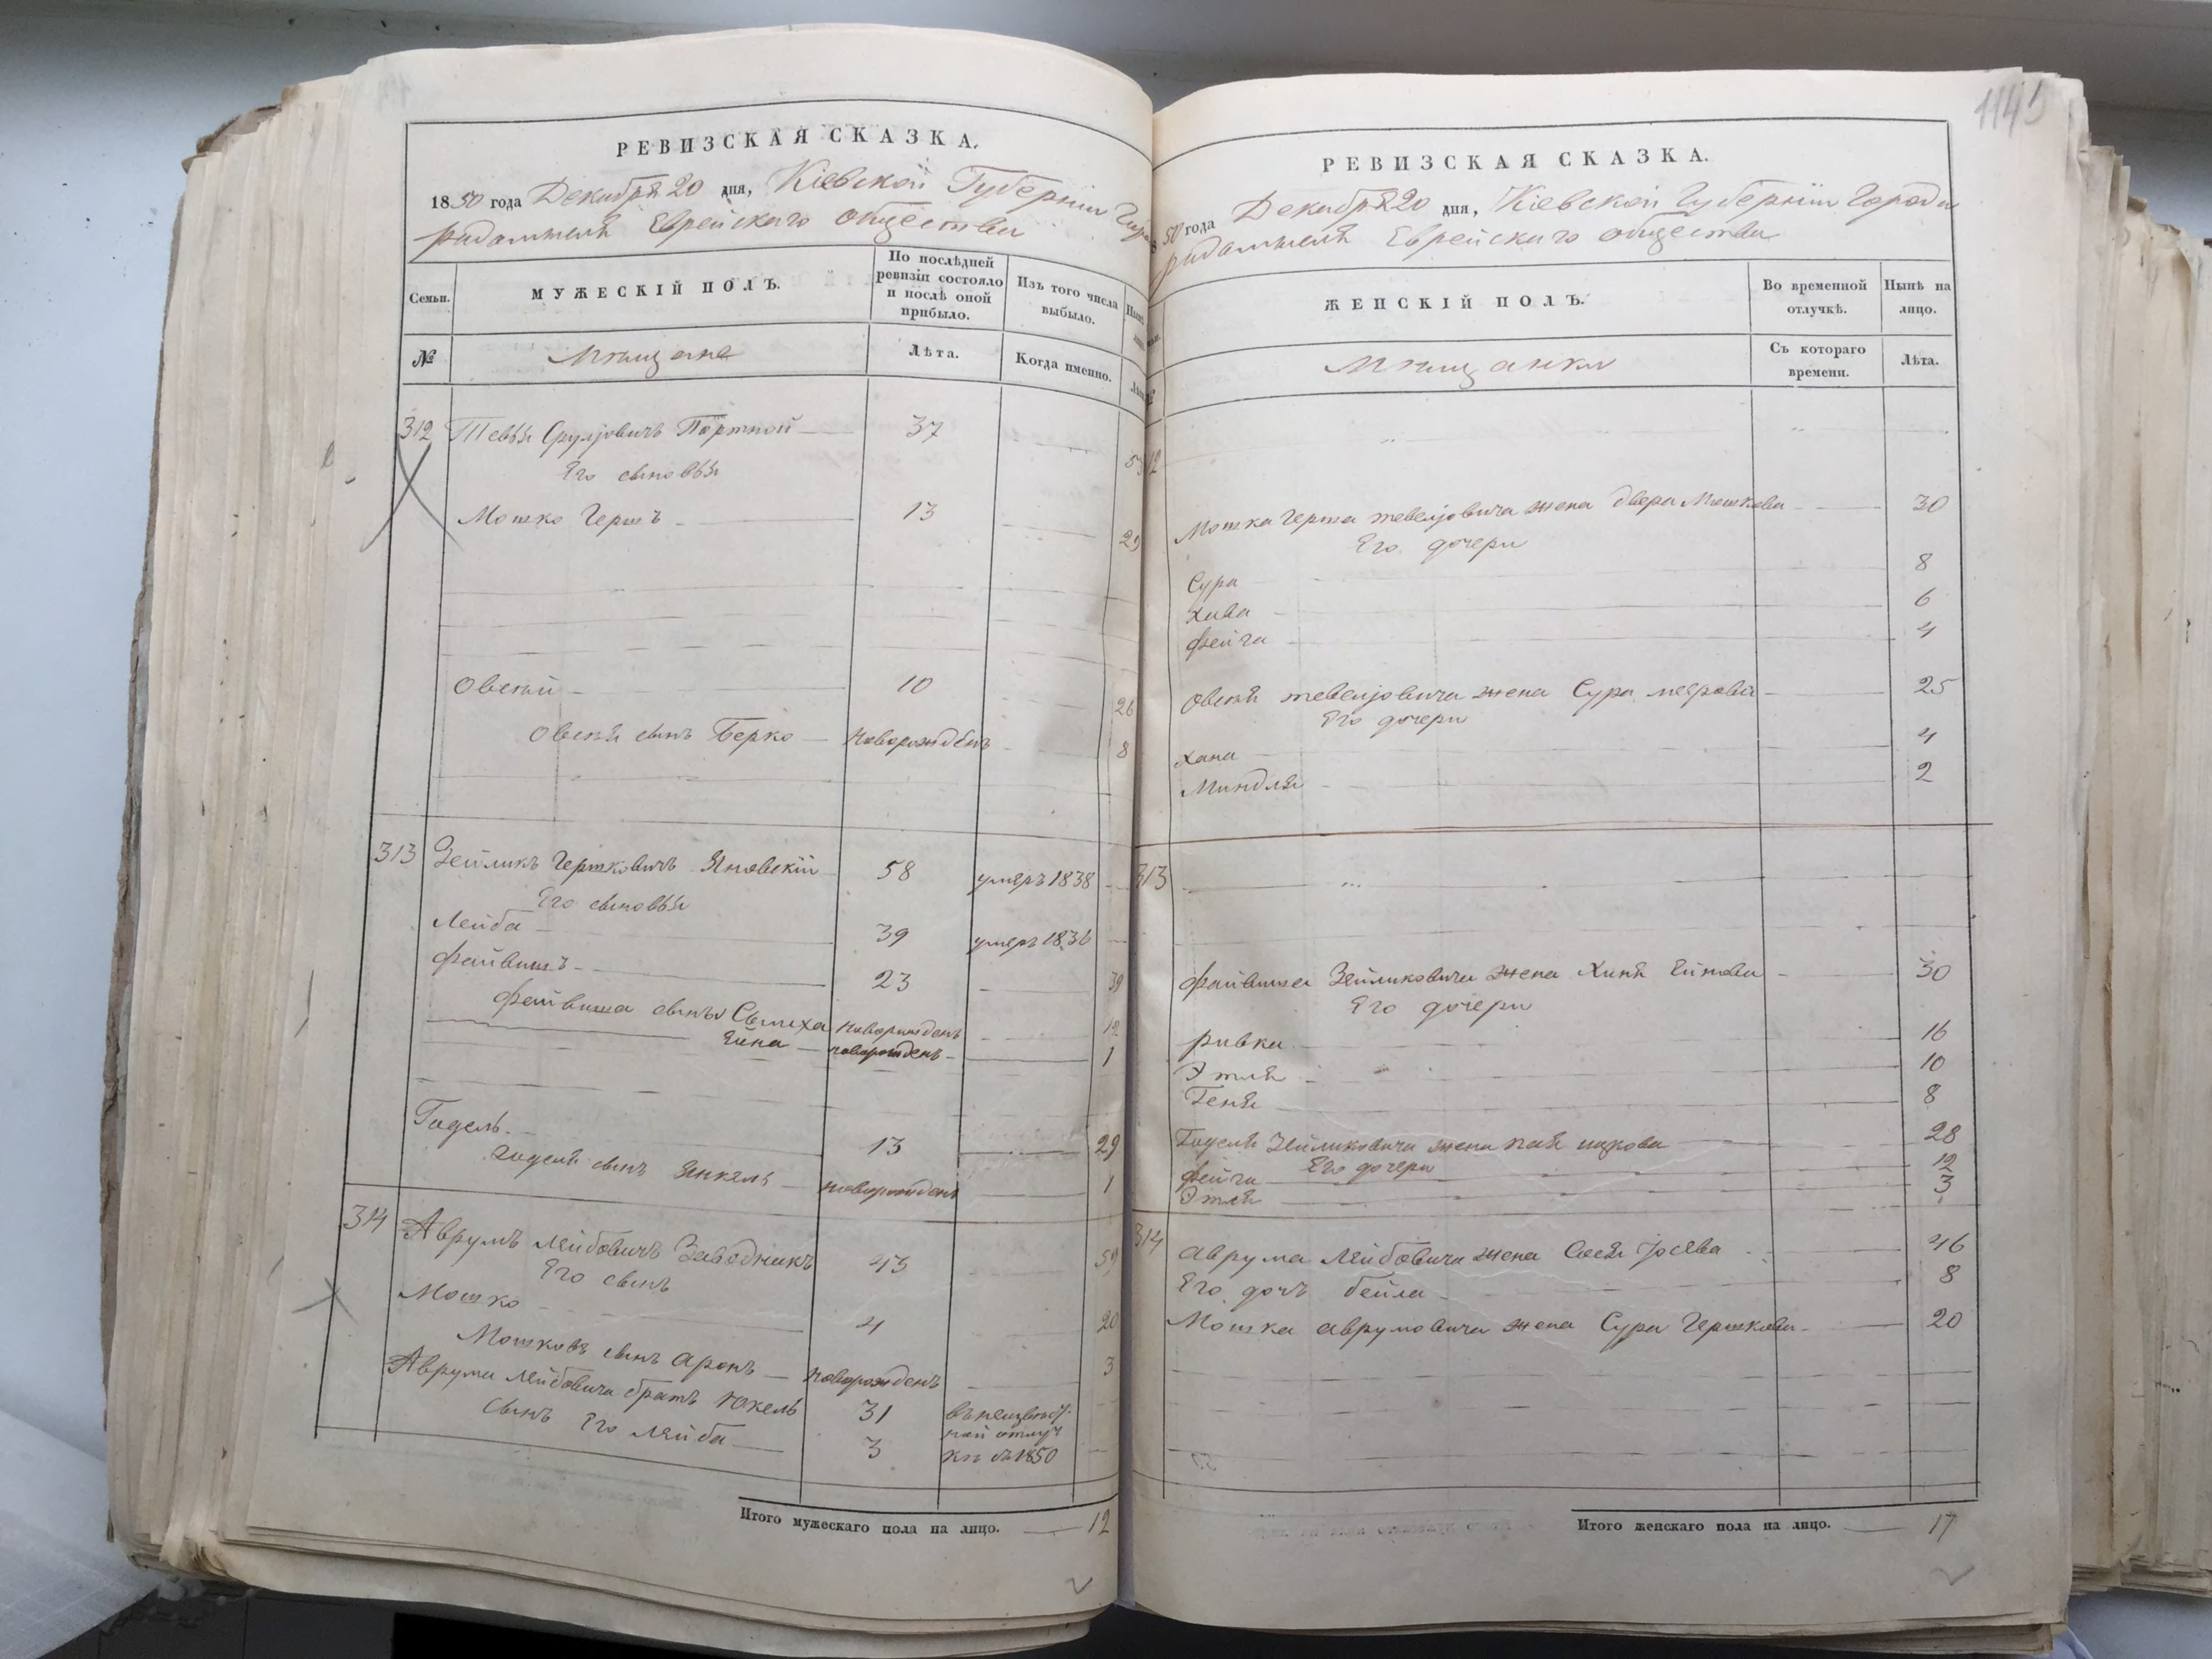 РЕВИЗСКАЯ СКАЗКА.
1850 года Декабря 20 дня, Кіевской Губерніи
Еврейскаго общества
Семьи.
МУЖЕСКІЙ ПОЛЪ.
По послѣдней ревизіи состояло и послѣ оной прибыло.
Изъ того числа выбыло.
№
Мѣщане
Лѣта.
Когда именно.
312 Тевья Срулевичъ Портной 37
Его сыновья
Мошко Гершъ 13 29
Овсей 10 26
Овсея сынъ Берко новорожденъ 8
313 Зейликъ Гершковичъ Яновскій 58 умеръ 1838
Его сыновья
Лейба 39 умеръ 1836
Файвишъ 23 39
Файвиша сынъ Сымха новорожденъ 12
новорожденъ 1
Годель 13 29
Годеля сынъ Янкель новорожденъ 1
314 Аврумъ Лейбовичъ Заводникъ 43 59
Его сынъ
Мошко 4 20
Мошковъ сынъ Аронъ новорожденъ 3
Аврума Лейбовича братъ Юкель 31 въ неизвѣст
ной отлуч
Сынъ Его Лейба 3 кѣ съ 1850
Итого мужескаго пола на лицо. 12
1145
РЕВИЗСКАЯ СКАЗКА.
50 года Декабря 20 дня, Кіевской Губерніи Города
Радомысля Еврейскаго общества
ЖЕНСКІЙ ПОЛЪ.
Во временной отлучкѣ.
Нынѣ на лицо.
Мѣщанки
Съ котораго времени.
Лѣта.
Мошка Герша Тевелювича жена Двера Мошкова 30
Его дочери
Сура 8
Хива 6
Фейга 4
Овсея Тевелювича жена Сура 25
Его дочери
Хана 4
Миндля 2
313
Файвиша Зейликовича жена Хиня 30
Его дочери
Ривка 16
Этля 10
Геня 8
Годеля Зейликовича жена 28
Его дочери
Фейга 12
Этля 3
314 Аврума Лейбовича жена Сося Іосева 46
Его дочь Бейла 8
Мошка Аврумовича жена Сура Гершкова 20
Итого женскаго пола на лицо. 17